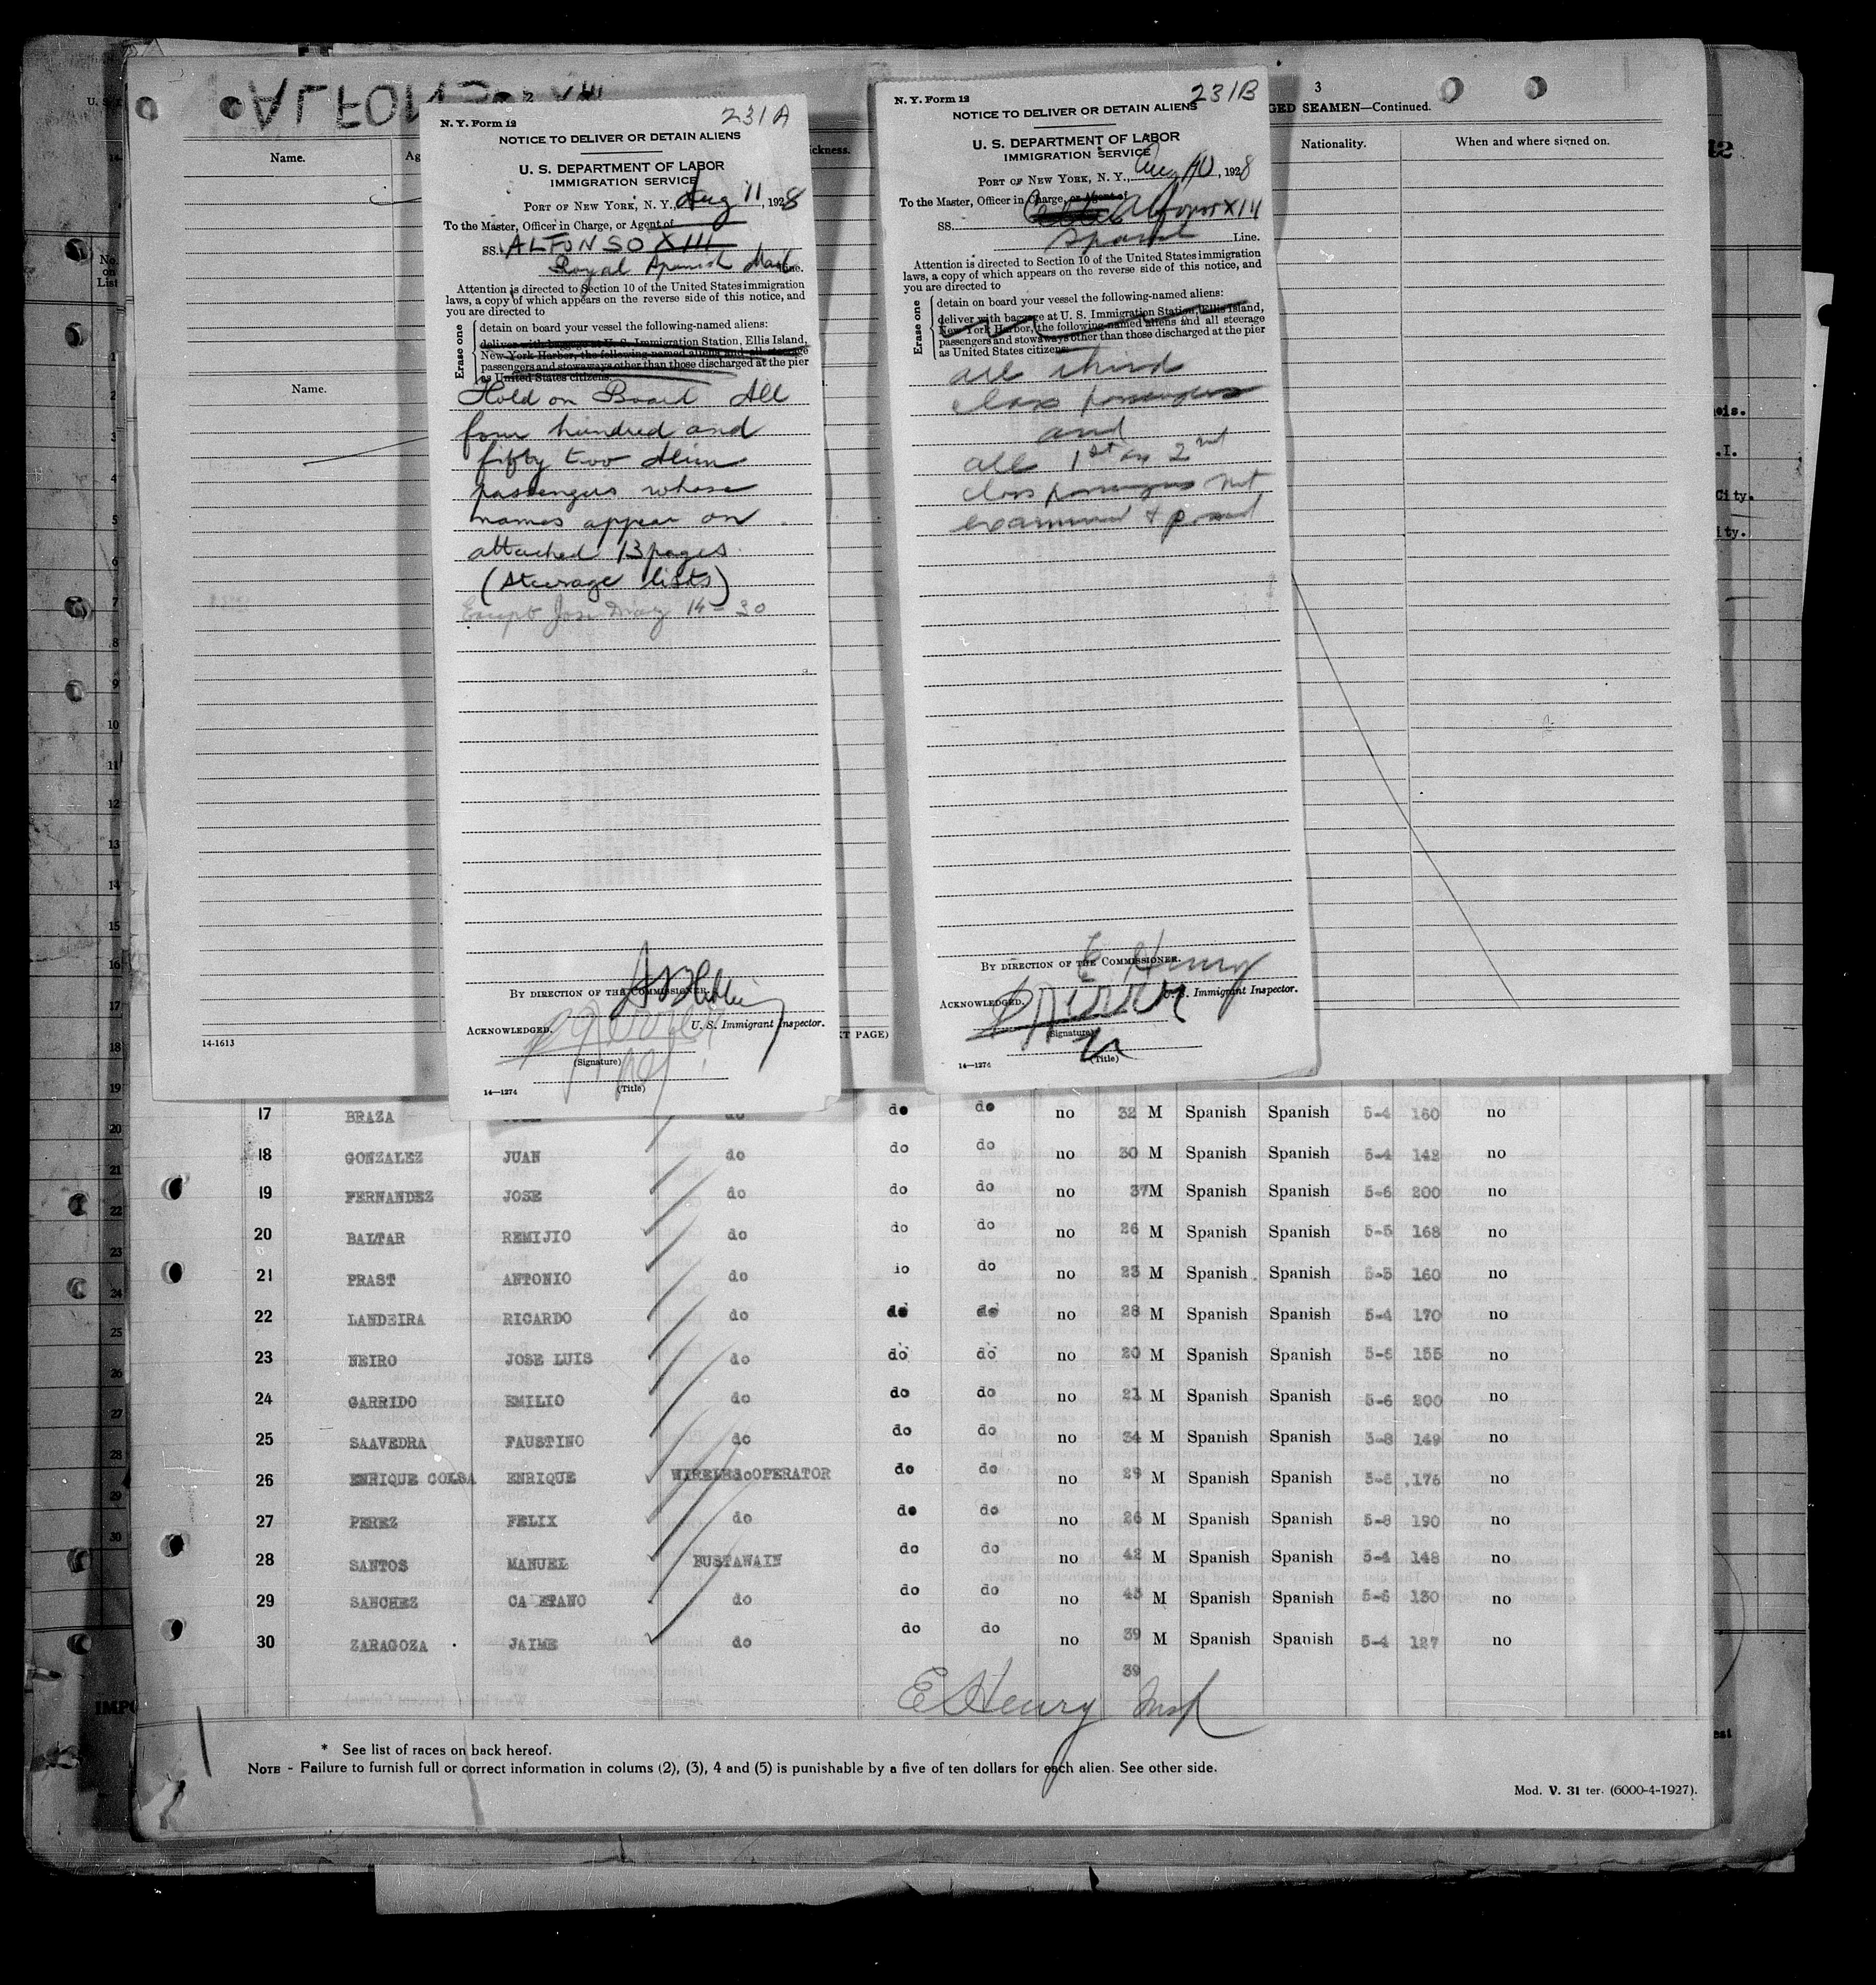 ALFONSO XIII
U. S.
Name.
Ag
ckness.
3
GED SEAMEN—Continued.
Nationality.
When and where signed on.
12
No. on List
Name.
N. Y. Form 12
231A
NOTICE TO DELIVER OR DETAIN ALIENS
U. S. DEPARTMENT OF LABOR
IMMIGRATION SERVICE
PORT OF NEW YORK, N. Y. Aug 11, 1928
To the Master, Officer in Charge, or Agent of
SS. ALFONSO XIII
Royal Spanish Mail Line.
Attention is directed to Section 10 of the United States immigration
laws, a copy of which appears on the reverse side of this notice, and
you are directed to
Erase one
detain on board your vessel the following-named aliens:
deliver with baggage at U. S. Immigration Station, Ellis Island,
New York Harbor, the following-named aliens and all steerage
passengers and stowaways other than those discharged at the pier
as United States citizens:
Hold on Board All
four hundred and
fifty two Alien
passengers whose
names appear on
attached 13 pages
(Steerage lists)
Except Jose Diaz 14-30
BY DIRECTION OF THE COMMISSIONER.
U. S. Immigrant Inspector.
ACKNOWLEDGED.
(Signature)
(Title)
14—1274
N. Y. Form 12
231B
NOTICE TO DELIVER OR DETAIN ALIENS
U. S. DEPARTMENT OF LABOR
IMMIGRATION SERVICE
PORT OF NEW YORK, N. Y., Aug 10, 1928
To the Master, Officer in Charge, or Agent of
SS. Alfonso XIII
Spanish Line.
Attention is directed to Section 10 of the United States immigration
laws, a copy of which appears on the reverse side of this notice, and
you are directed to
Erase one
detain on board your vessel the following-named aliens:
deliver with baggage at U. S. Immigration Station, Ellis Island,
New York Harbor, the following-named aliens and all steerage
passengers and stowaways other than those discharged at the pier
as United States citizens:
all third
class passengers
and
all 1st or 2nd
class passengers not
examined & passed
BY DIRECTION OF THE COMMISSIONER.
E Henry
U. S. Immigrant Inspector.
ACKNOWLEDGED.
(Signature)
(Title)
14—1274
14-1613
XT PAGE)
17 BRAZA do do do no 32 M Spanish Spanish 5-4 160 no
18 GONZALEZ JUAN do do do no 30 M Spanish Spanish 5-4 142 no
19 FERNANDEZ JOSE do do do no 37 M Spanish Spanish 5-6 200 no
20 BALTAR REMIJIO do do do no 26 M Spanish Spanish 5-5 168 no
21 PRAST ANTONIO do do do no 23 M Spanish Spanish 5-5 160 no
22 LANDEIRA RICARDO do do do no 28 M Spanish Spanish 5-4 170 no
23 NEIRO JOSE LUIS do do do no 20 M Spanish Spanish 5-6 155 no
24 GARRIDO EMILIO do do do no 21 M Spanish Spanish 5-6 200 no
25 SAAVEDRA FAUSTINO do do do no 34 M Spanish Spanish 5-8 149 no
26 ENRIQUE COLSA ENRIQUE WIRELES OPERATOR do do no 29 M Spanish Spanish 5-5 176 no
27 PEREZ FELIX do do do no 26 M Spanish Spanish 5-8 190 no
28 SANTOS MANUEL BUSTAWAIN do do no 42 M Spanish Spanish 5-4 148 no
29 SANCHEZ CA ETANO do do do no 45 M Spanish Spanish 5-6 130 no
30 ZARAGOZA JAIME do do do no 39 M Spanish Spanish 5-4 127 no
39
E Henry Insp
* See list of races on back hereof.
NOTE - Failure to furnish full or correct information in colums (2), (3), 4 and (5) is punishable by a five of ten dollars for each alien. See other side.
Mod. V. 31 ter. (6000-4-1927).